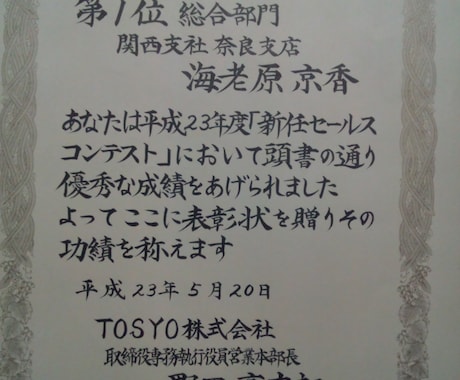 第1位 総合部門
関西支社 奈良支店
海老原 京香
あなたは平成23年度「新任セールス
コンテスト」において頭書の通り
優秀な成績をあげられました
よってここに表彰状を贈りその
功績を称えます
平成23年5月20日
TOSYO株式会社
取締役専務執行役員営業本部長